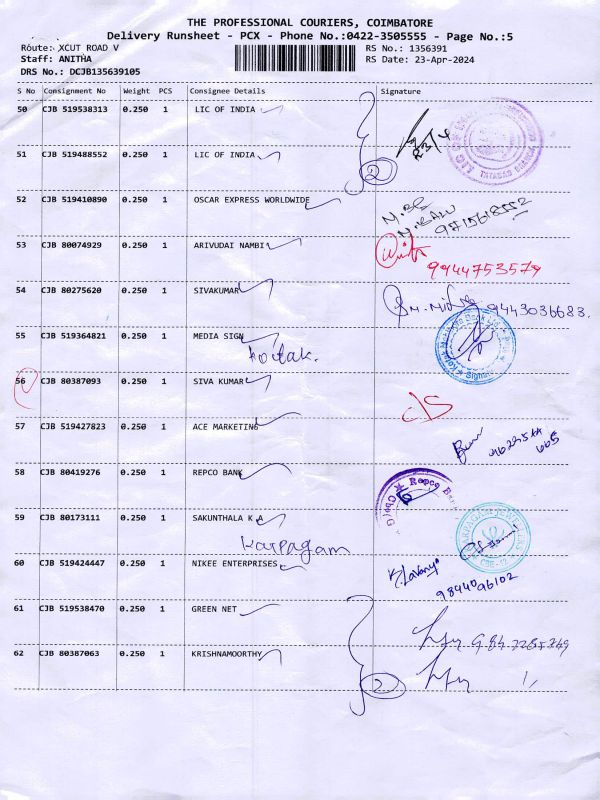 THE PROFESSIONAL COURIERS, COIMBATORE
Delivery Runsheet - PCX - Phone No.:0422-3505555 - Page No.:5
Route: XCUT ROAD V
RS No.: 1356391
Staff: ANITHA
RS Date: 23-Apr-2024
DRS No.: DCJB135639105
S No Consignment No Weight PCS Consignee Details Signature
50 CJB 519538313 0.250 1 LIC OF INDIA
51 CJB 519488552 0.250 1 LIC OF INDIA
2
52 CJB 519410890 0.250 1 OSCAR EXPRESS WORLDWIDE
53 CJB 80074929 0.250 1 ARIVUDAI NAMBI
9944753579
54 CJB 80275620 0.250 1 SIVAKUMAR
9443036683.
55 CJB 519364821 0.250 1 MEDIA SIGN
kotak.
56 CJB 80387093 0.250 1 SIVA KUMAR
57 CJB 519427823 0.250 1 ACE MARKETING
58 CJB 80419276 0.250 1 REPCO BANK
Repco Bank
59 CJB 80173111 0.250 1 SAKUNTHALA K A
karpagam
60 CJB 519424447 0.250 1 NIKEE ENTERPRISES
K. Lavanya
9894096102
61 CJB 519538470 0.250 1 GREEN NET
62 CJB 80387063 0.250 1 KRISHNAMOORTHY
2